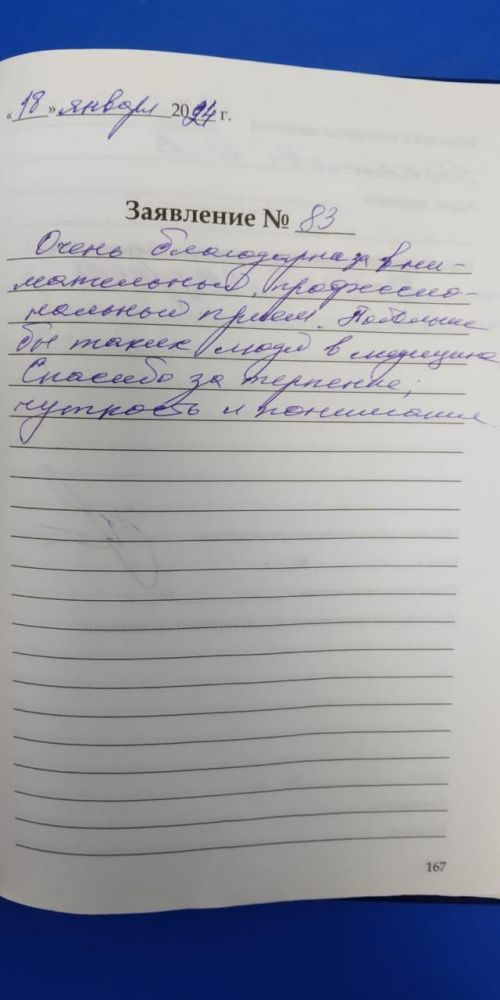 «18» января 2024 г.
Заявление № 83
Очень благодарна за вни-
мательный, профессио-
нальный прием. Побольше
бы таких людей в медицине
Спасибо за терпение,
чуткость и понимание.
167